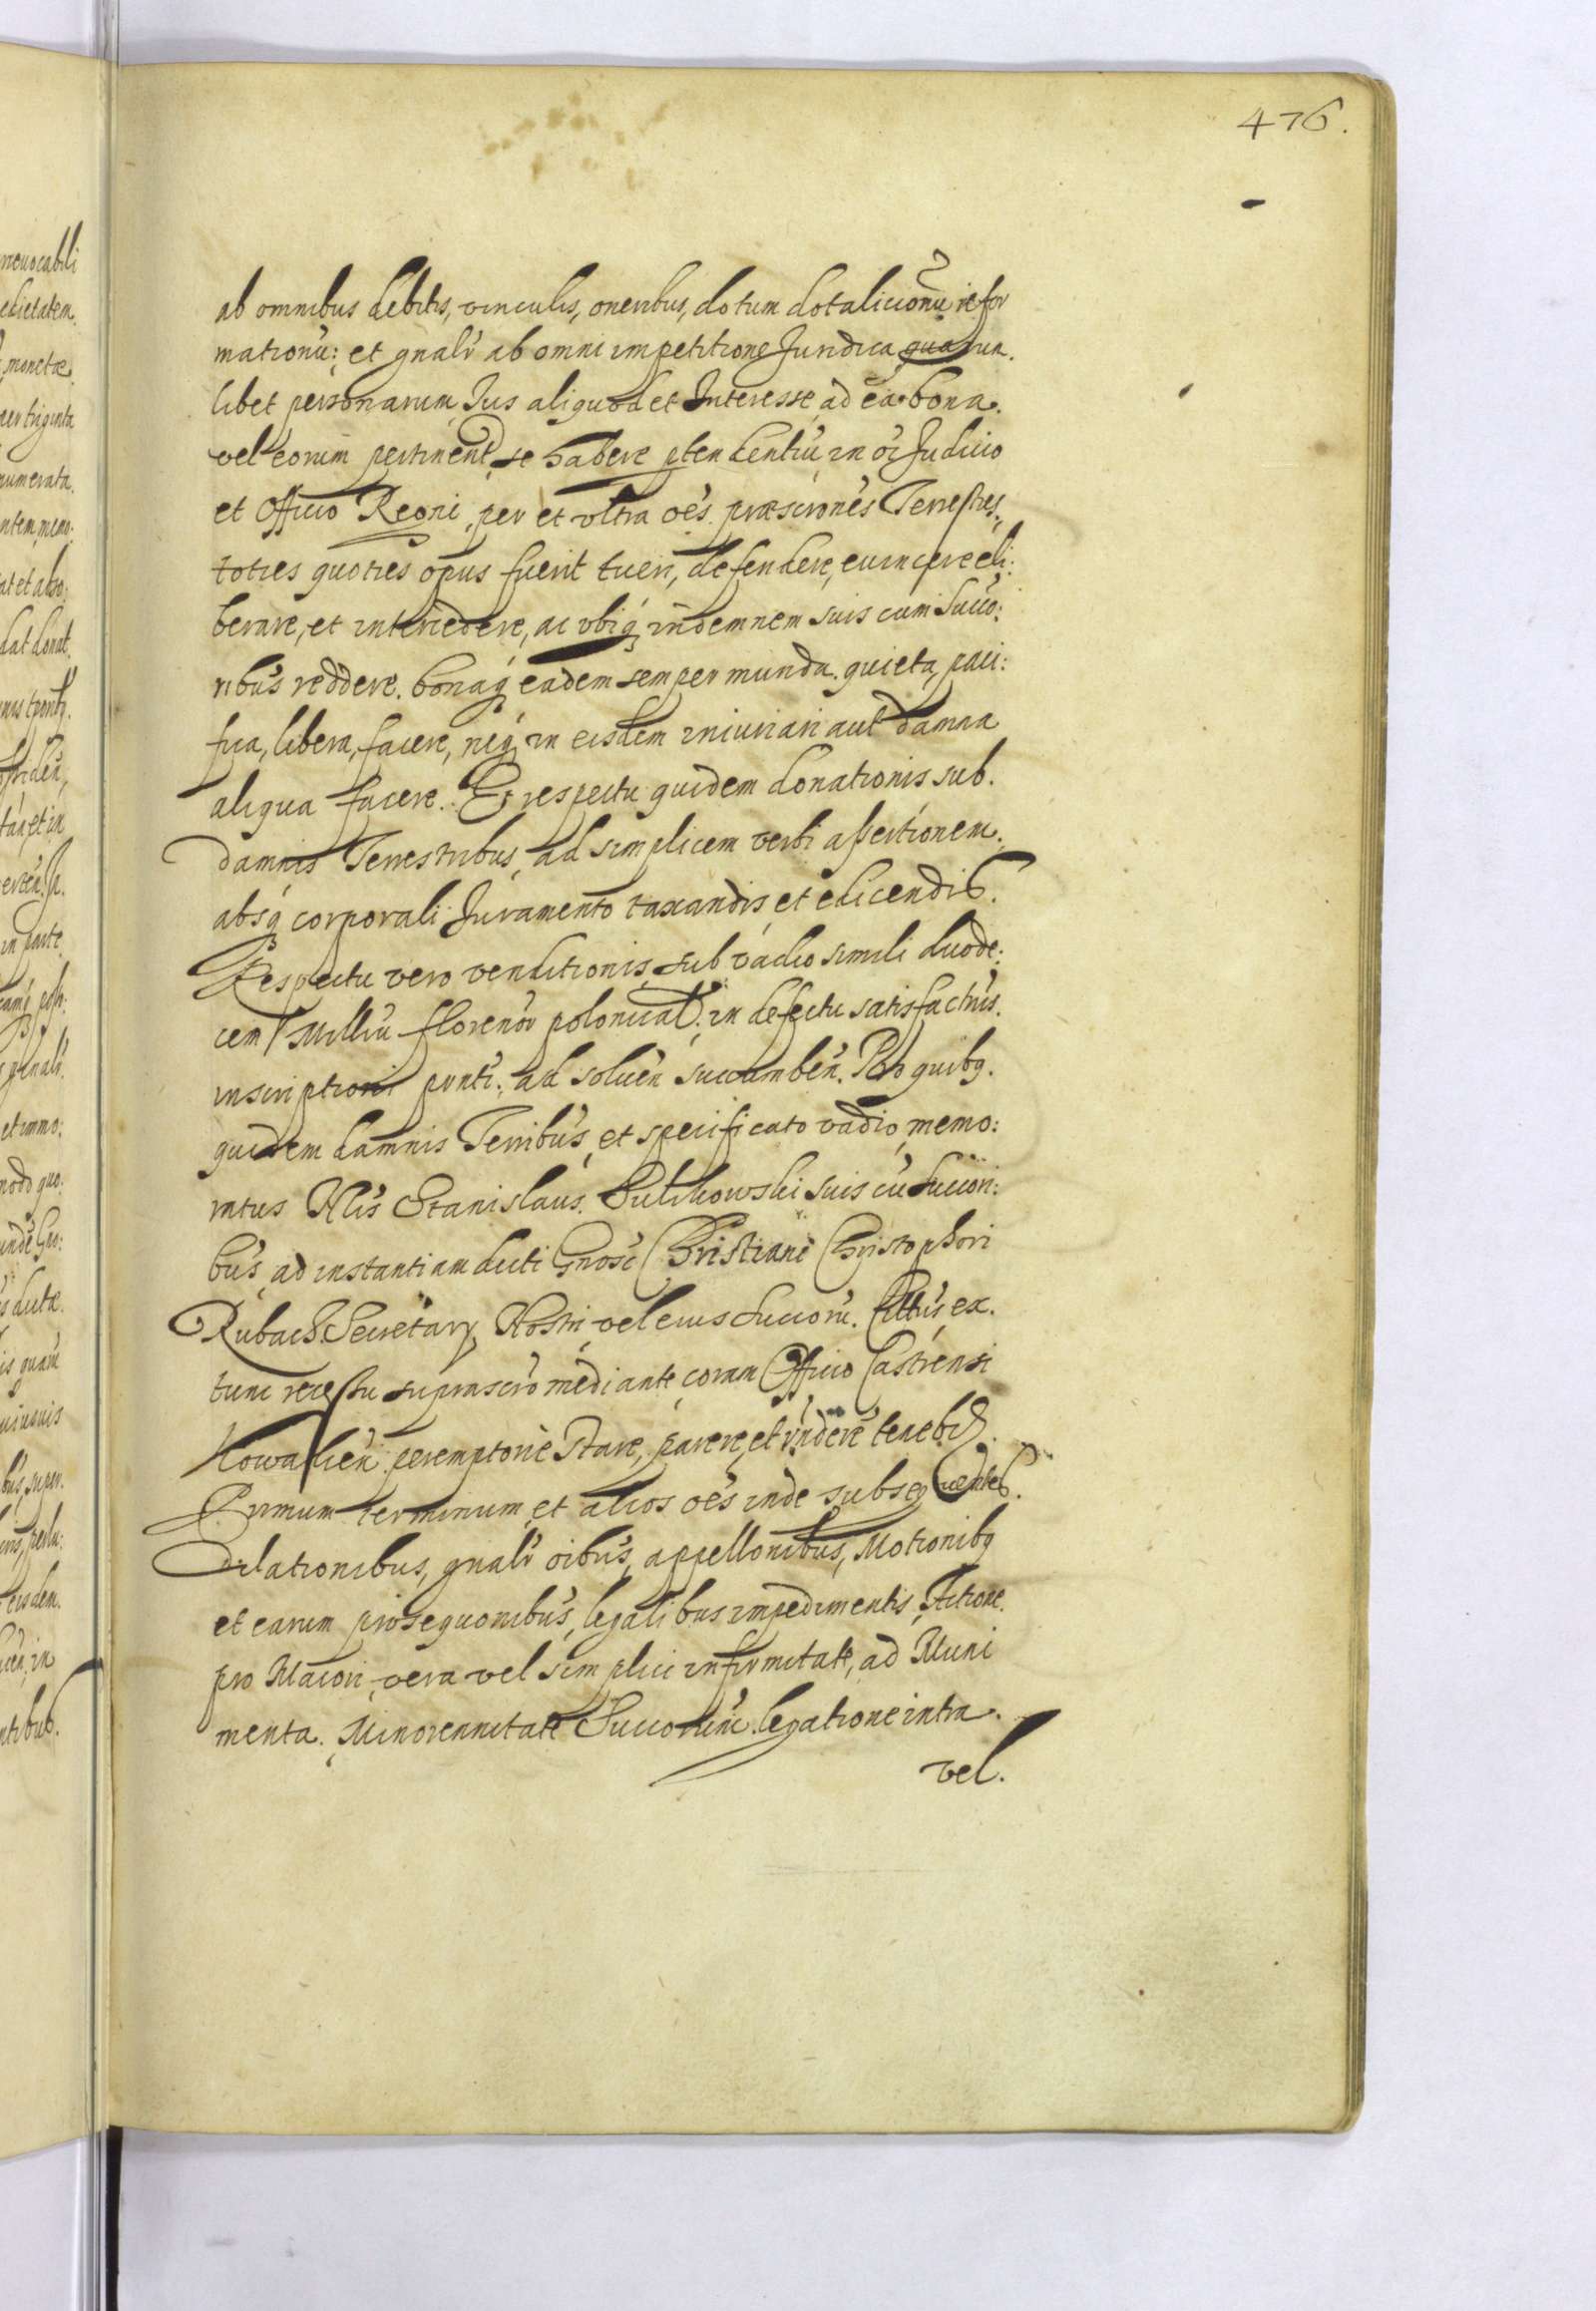 476.
ab omnibus debitis, vinculis, oneribus, dotum dotalicionũ refor
mationũ: et gnalr ab omni impetitione Juridica quarun
libet personarum Jus aliquod et Interesse ad ea bona
vel eorum pertinent se habere ptendentiũ in oi Judicio
et Officio Regni, per et ultra oes præsciones Terrestres,
toties quoties opus fuerit tueri, defendere, euincere eli:
berare, et intercedere, ac ubiq indemnem suis cum Succo:
ribus reddere. bonaq eadem semper munda quieta, paci:
fica, libera, facere, neq in eisdem iniuriari aut damna
aliqua facere. Et respectu quidem donationis sub
damnis Terrestribus, ad simplicem verbi assertionem
absq corporali Juramento taxandis et edicendis.
Respectu vero venditionis sub vadio simili duode:
cem Milliũ florenor polonical: in defectu satisfactnis
inscriptioni pnti: ad soluen succumben. Pro quibq
quidem damnis Terribus et specificato vadio memo:
ratus Nlis Stanislaus Sulikowski suis cũ succori:
bus ad instantiam dicti Gnosi Christiani Christophori
Rubach Secretary Nostri vel eius succorũ. Cittus ex
tunc recessu suprascro mediante coram Officio Castrensi
Kowalien peremptorie stare, parere, et rndere tenebr.
Primum terminum et alios oes inde subseq uentes.
Dilationibus, gnalr oibus, appellonibus, Motionibq
et earum prosequonibus, legalibus impedimentis, Actione
pro Maiori, vera vel simplici infirmitate, ad Muni
menta. Minorennitate Succorum legatione intra
vel.